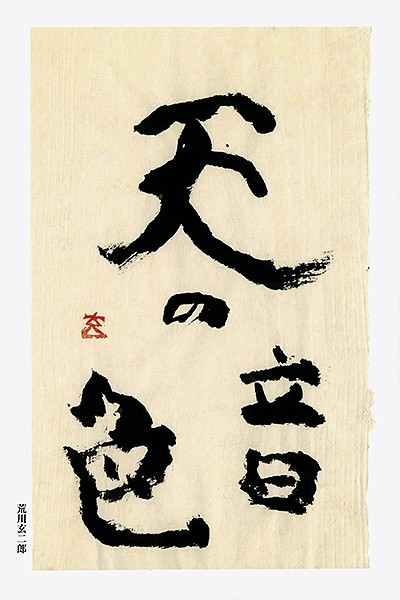 天の
音
色
玄
荒川玄二郎